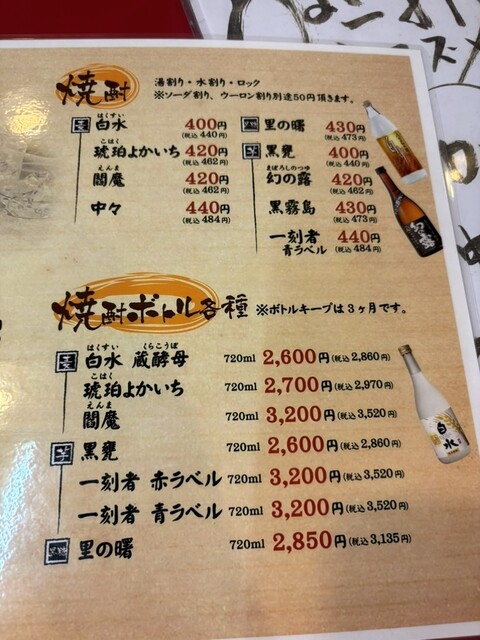 焼酎
湯割り・水割り・ロック
※ソーダ割り、ウーロン割り別途50円頂きます。
麦 白水 はくすい 400円 (税込440円)
琥珀よかいち こはく 420円 (税込462)
閻魔 えんま 420円 (税込462)
中々 440円 (税込484)
里の曙 430円 (税込473)
芋 黒甕 400円 (税込440)
幻の露 まぼろしのつゆ 420円 (税込462)
黒霧島 430円 (税込473)
一刻者 青ラベル 440円 (税込484)
焼酎ボトル各種 ※ボトルキープは3ヶ月です。
麦 白水 蔵酵母 はくすい くらこうぼ 720ml 2,600円(税込2,860)
琥珀よかいち こはく 720ml 2,700円(税込2,970)
閻魔 えんま 720ml 3,200円(税込3,520)
芋 黒甕 720ml 2,600円(税込2,860)
一刻者 赤ラベル 720ml 3,200円(税込3,520)
一刻者 青ラベル 720ml 3,200円(税込3,520)
里の曙 720ml 2,850円(税込3,135円)
白水